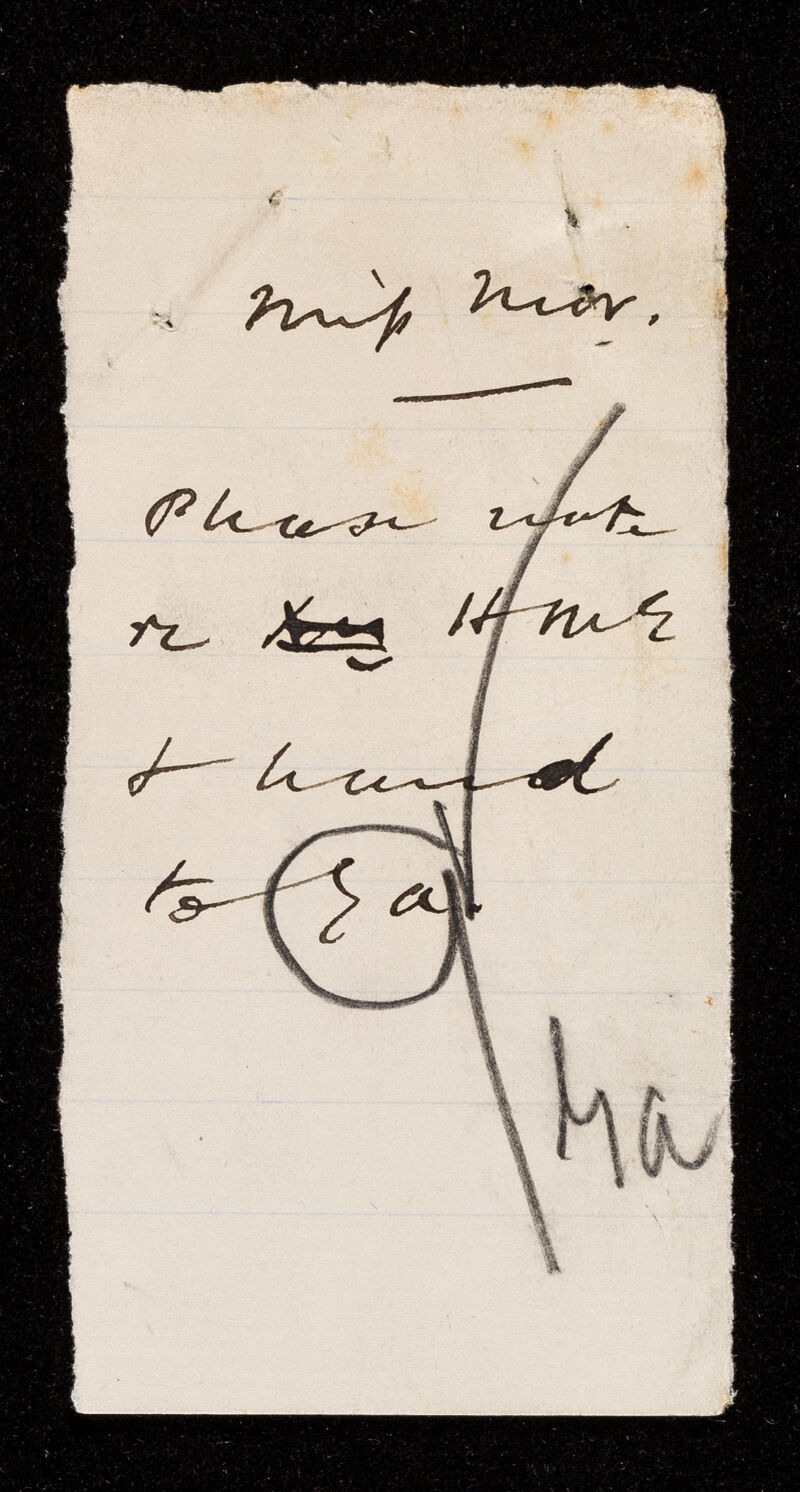 Miss Mor.
Please note
re HME
& hand
to Ga.
Ha